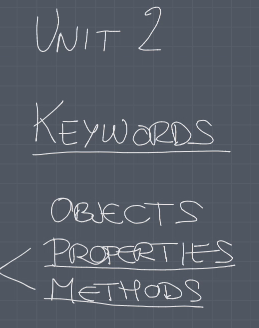 UNIT 2
KEYWORDS
OBJECTS
PROPERTIES
METHODS